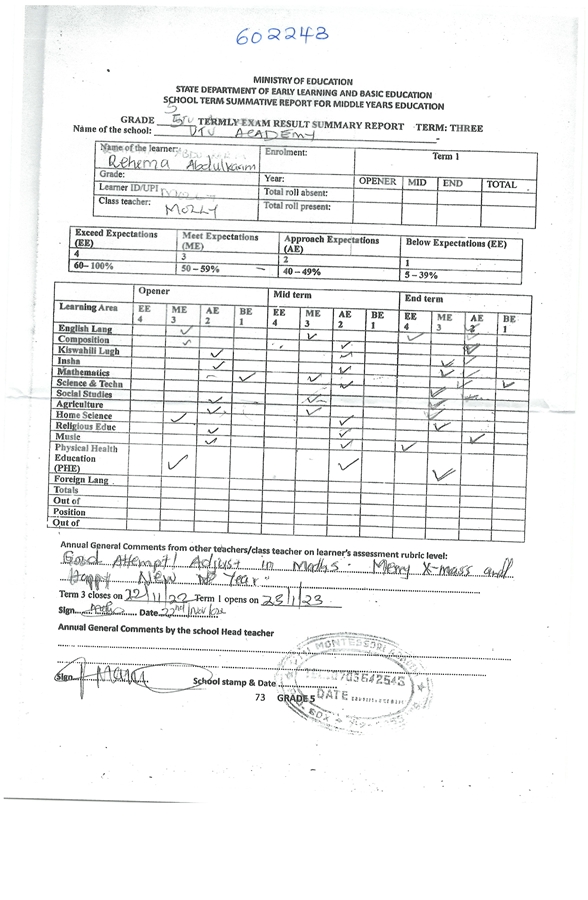 602243
MINISTRY OF EDUCATION
STATE DEPARTMENT OF EARLY LEARNING AND BASIC EDUCATION
SCHOOL TERM SUMMATIVE REPORT FOR MIDDLE YEARS EDUCATION
5
GRADE TERMLY EXAM RESULT SUMMARY REPORT TERM: THREE
Name of the school: DTU ACADEMY
Name of the learner: Rehema Abdulkarim
Enrolment: Term 1
Grade: Year: OPENER MID END TOTAL
Learner ID/UPI Total roll absent:
Class teacher: Molly Total roll present:
Exceed Expectations (EE) Meet Expectations (ME) Approach Expectations (AE) Below Expectations (EE)
4 3 2 1
60–100% 50 – 59% 40 – 49% 5 – 39%
Opener Mid term End term
Learning Area EE 4 ME 3 AE 2 BE 1 EE 4 ME 3 AE 2 BE 1 EE 4 ME 3 AE 2 BE 1
English Lang
Composition
Kiswahili Lugh
Insha
Mathematics
Science & Techn
Social Studies
Agriculture
Home Science
Religious Educ
Music
Physical Health
Education
(PHE)
Foreign Lang
Totals
Out of
Position
Out of
Annual General Comments from other teachers/class teacher on learner's assessment rubric level:
Good Attempt! Adjust in Maths. Merry X-mass and
Happy New Year.
Term 3 closes on 22/11/22 Term 1 opens on 23/1/23
Sign Date 22nd/Nov/022
Annual General Comments by the school Head teacher
Sign School stamp & Date
MONTESSORI
0703642543
DATE
73 GRADE 5